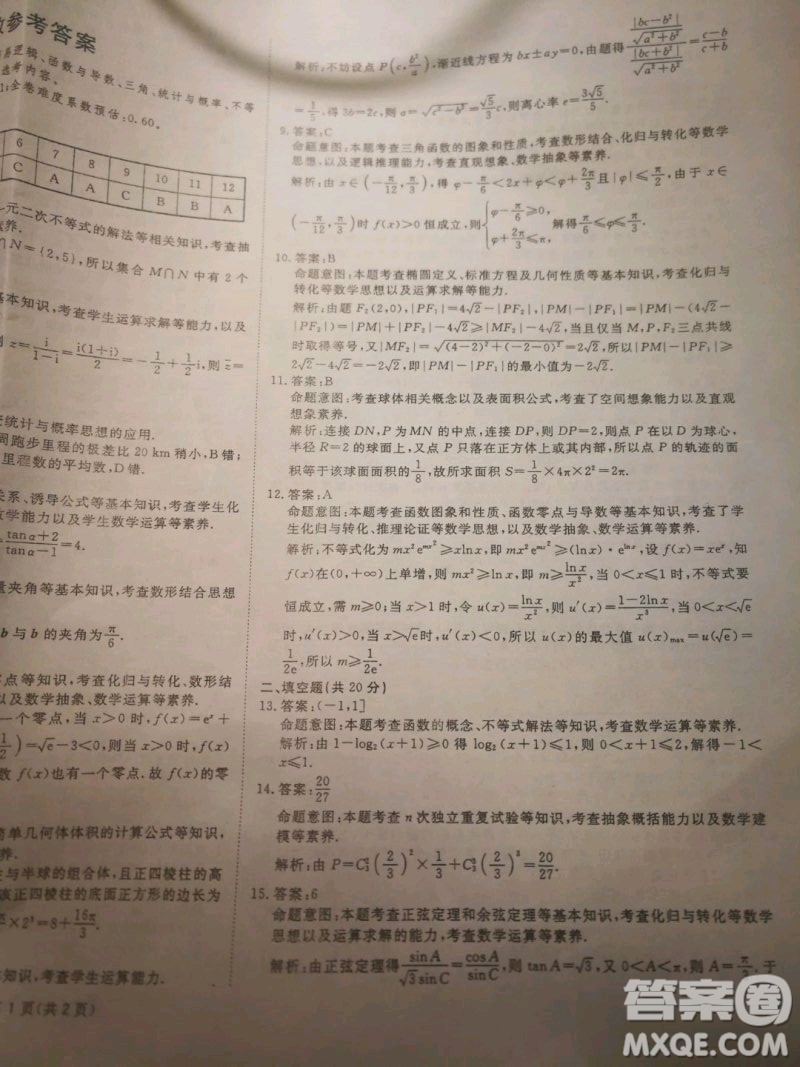 数参考答案
易逻辑、函数与导数、三角、统计与概率、不等
选考内容.
全卷难度系数预估:0.60.
6 7 8 9 10 11 12
C A A C B B A
元二次不等式的解法等相关知识,考查抽
素养.
∩N={2,5},所以集合 M∩N 中有 2 个
基本知识,考查学生运算求解等能力,以及
则 z=i/(1-i)=i(1+i)/2=-1/2+1/2 i,则 z̄=
统计与概率思想的应用.
周跑步里程的极差比 20 km 稍小,B 错;
里程数的平均数,D 错.
关系、诱导公式等基本知识,考查学生化
数学能力以及学生数学运算等素养.
(tanα+2)/(tanα-1)=4.
量夹角等基本知识,考查数形结合思想
b 与 b 的夹角为 π/6.
零点等知识,考查化归与转化、数形结
以及数学抽象、数学运算等素养.
一个零点,当 x>0 时,f(x)=eˣ+
1/2)=√e-3<0,则当 x>0 时,
数 f(x)也有一个零点.故 f(x)的零
简单几何体体积的计算公式等知识,
养.
与半球的组合体,且正四棱柱的高
该正四棱柱的底面正方形的边长为
×2³=8+16π/3.
本知识,考查学生运算能力.
1 页(共 2 页)
解析:不妨设点 P(c, b²/a),渐近线方程为 bx±ay=0,由题得 (|bc-b²|/√(a²+b²))/(|bc+b²|/√(a²+b²))=(c-b)/(c+b)
=1/5,得 3b=2c,则 a=√(c²-b²)=√5/3 c,则离心率 e=3√5/5.
9. 答案:C
命题意图:本题考查三角函数的图象和性质,考查数形结合、化归与转化等数学
思想,以及逻辑推理能力,考查直观想象、数学抽象等素养.
解析:由 x∈(-π/12, π/3),得 φ-π/6<2x+φ<φ+2π/3 且|φ|≤π/2,由于 x∈
(-π/12, π/3)时 f(x)>0 恒成立,则{φ-π/6≥0, φ+2π/3≤π, 解得 π/6≤φ≤π/3.
10. 答案:B
命题意图:本题考查椭圆定义、标准方程及几何性质等基本知识,考查化归与
转化等数学思想以及运算求解等能力.
解析:由题 F₂(2,0),|PF₁|=4√2-|PF₂|,|PM|-|PF₁|=|PM|-(4√2-
|PF₂|)=|PM|+|PF₂|-4√2≥|MF₂|-4√2,当且仅当 M,P,F₂三点共线
时取得等号,又|MF₂|=√((4-2)²+(-2-0)²)=2√2,所以|PM|-|PF₁|≥
2√2-4√2=-2√2,即|PM|-|PF₁|的最小值为-2√2.
11. 答案:B
命题意图:考查球体相关概念以及表面积公式,考查了空间想象能力以及直观
想象素养.
解析:连接 DN,P 为 MN 的中点,连接 DP,则 DP=2,则点 P 在以 D 为球心,
半径 R=2 的球面上,又点 P 只落在正方体上或其内部,所以点 P 的轨迹的面
积等于该球面面积的 1/8,故所求面积 S=1/8×4π×2²=2π.
12. 答案:A
命题意图:本题考查函数图象和性质、函数零点与导数等基本知识,考查了学
生化归与转化、推理论证等数学思想,以及数学抽象、数学运算等素养.
解析:不等式化为 mx²e^{mx²}≥xlnx,即 mx²e^{mx²}≥(lnx)·e^{lnx},设 f(x)=xeˣ,知
f(x)在(0,+∞)上单增,则 mx²≥lnx,即 m≥lnx/x²,当 0<x≤1 时,不等式要
恒成立,需 m≥0;当 x>1 时,令 u(x)=lnx/x²,则 u′(x)=(1-2lnx)/x³,当 0<x<√e
时,u′(x)>0,当 x>√e时,u′(x)<0,所以 u(x)的最大值 u(x)max=u(√e)=
1/2e,所以 m≥1/2e.
二、填空题(共 20 分)
13. 答案:(-1,1]
命题意图:本题考查函数的概念、不等式解法等知识,考查数学运算等素养.
解析:由 1-log₂(x+1)≥0 得 log₂(x+1)≤1,则 0<x+1≤2,解得-1<
x≤1.
14. 答案:20/27
命题意图:本题考查 n 次独立重复试验等知识,考查抽象概括能力以及数学建
模等素养.
解析:由 P=C²₃(2/3)²×1/3+C³₃(2/3)³=20/27.
15. 答案:6
命题意图:本题考查正弦定理和余弦定理等基本知识,考查化归与转化等数学
思想以及运算求解的能力,考查数学运算等素养.
解析:由正弦定理得 sinA/(√3sinC)=cosA/sinC,则 tanA=√3,又 0<A<π,则 A=π/3,于
答案圈
MXQE.COM